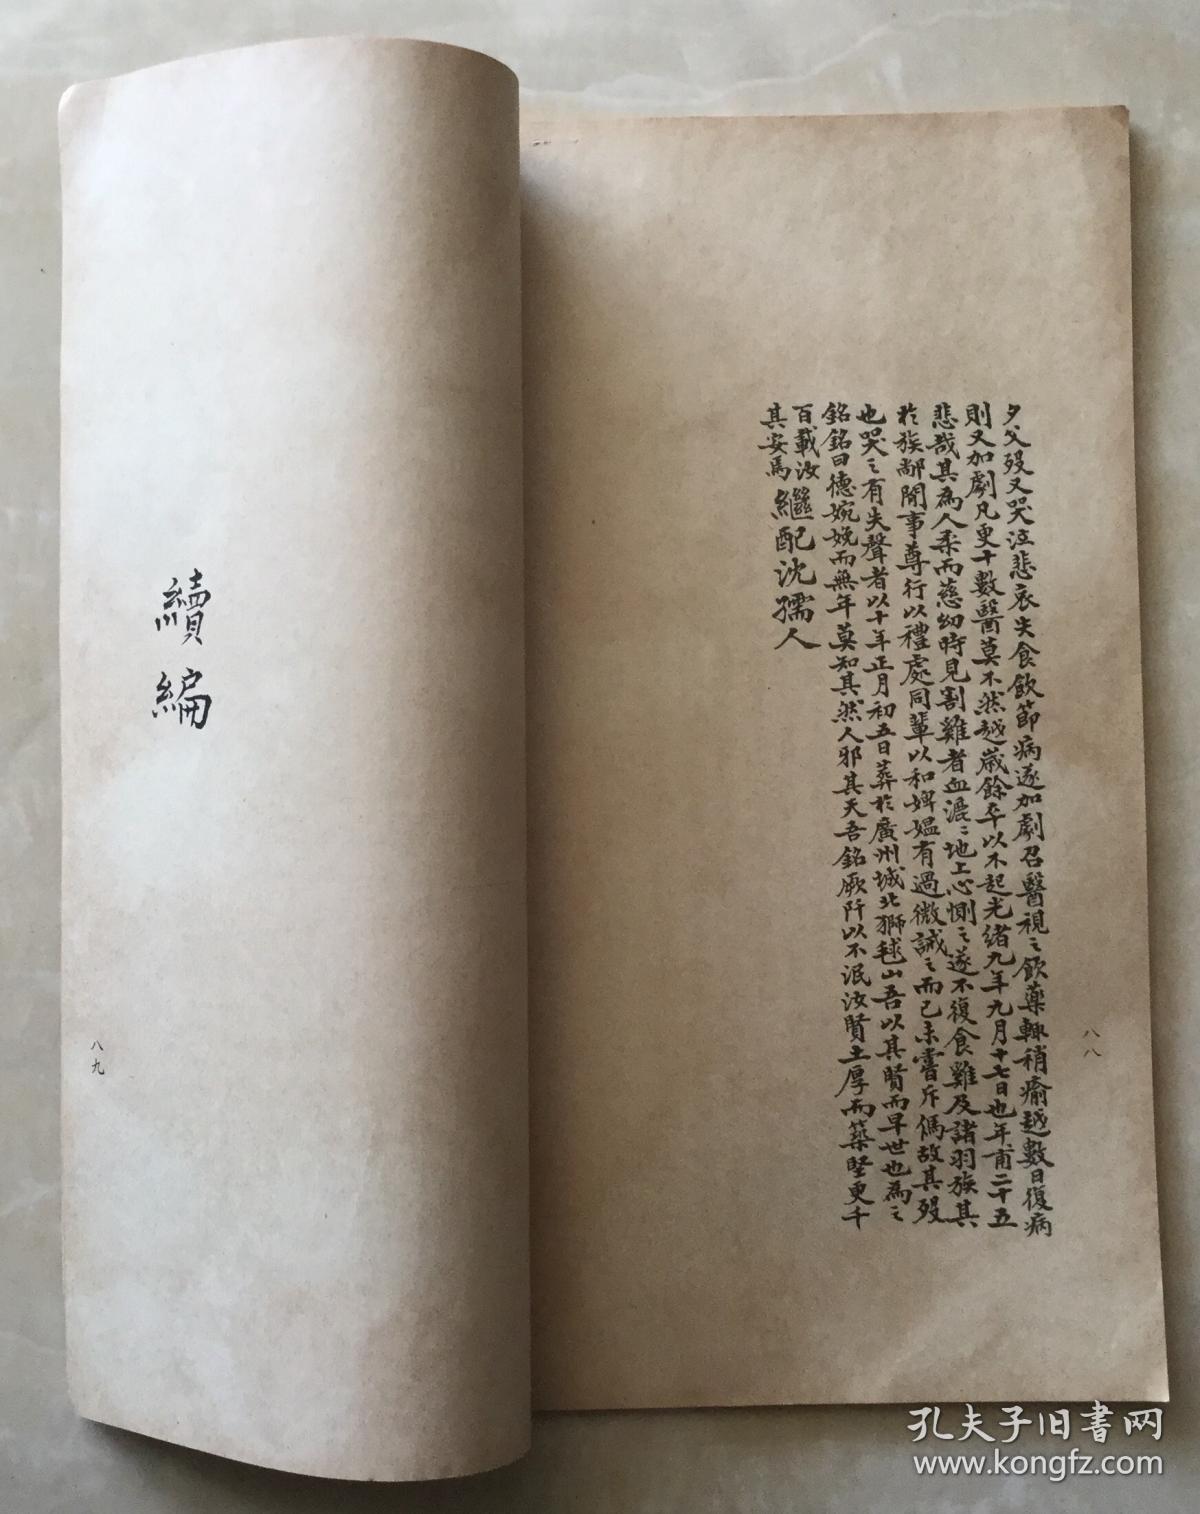 夕父歿又哭泣悲哀失食飲節病遂加劇召醫視之飲藥輒稍瘉越數日復病
則又加劇凡更十數醫莫不然越歲餘卒以不起光緒九年九月十七日也年甫二十五
悲哉其為人柔而慈幼時見割雞者血漉漉地上心惻之遂不復食雞及諸羽族其
於族鄰閒事尊行以禮處同輩以和婢媼有過微誡之而已未嘗斥傌故其歿
也哭之有失聲者以十年正月初五日葬於廣州城北獅毬山吾以其賢而早世也為之
銘銘曰德婉娩而無年莫知其然人邪其天吾銘厥阡以不泯汝賢土厚而築堅更千
百載汝
其安焉繼配沈孺人
八八
續編
八九
孔夫子旧書网
www.kongfz.com